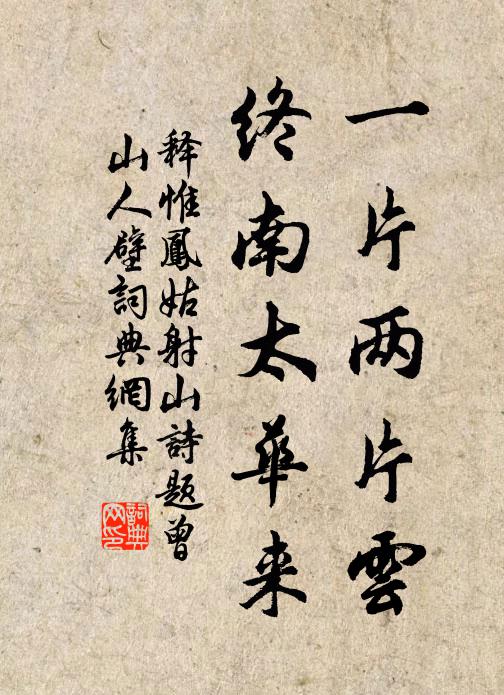 一片两片雲
终南太華来
释惟鳳姑射山詩題曾
山人壁詞典網集
詞典
网印